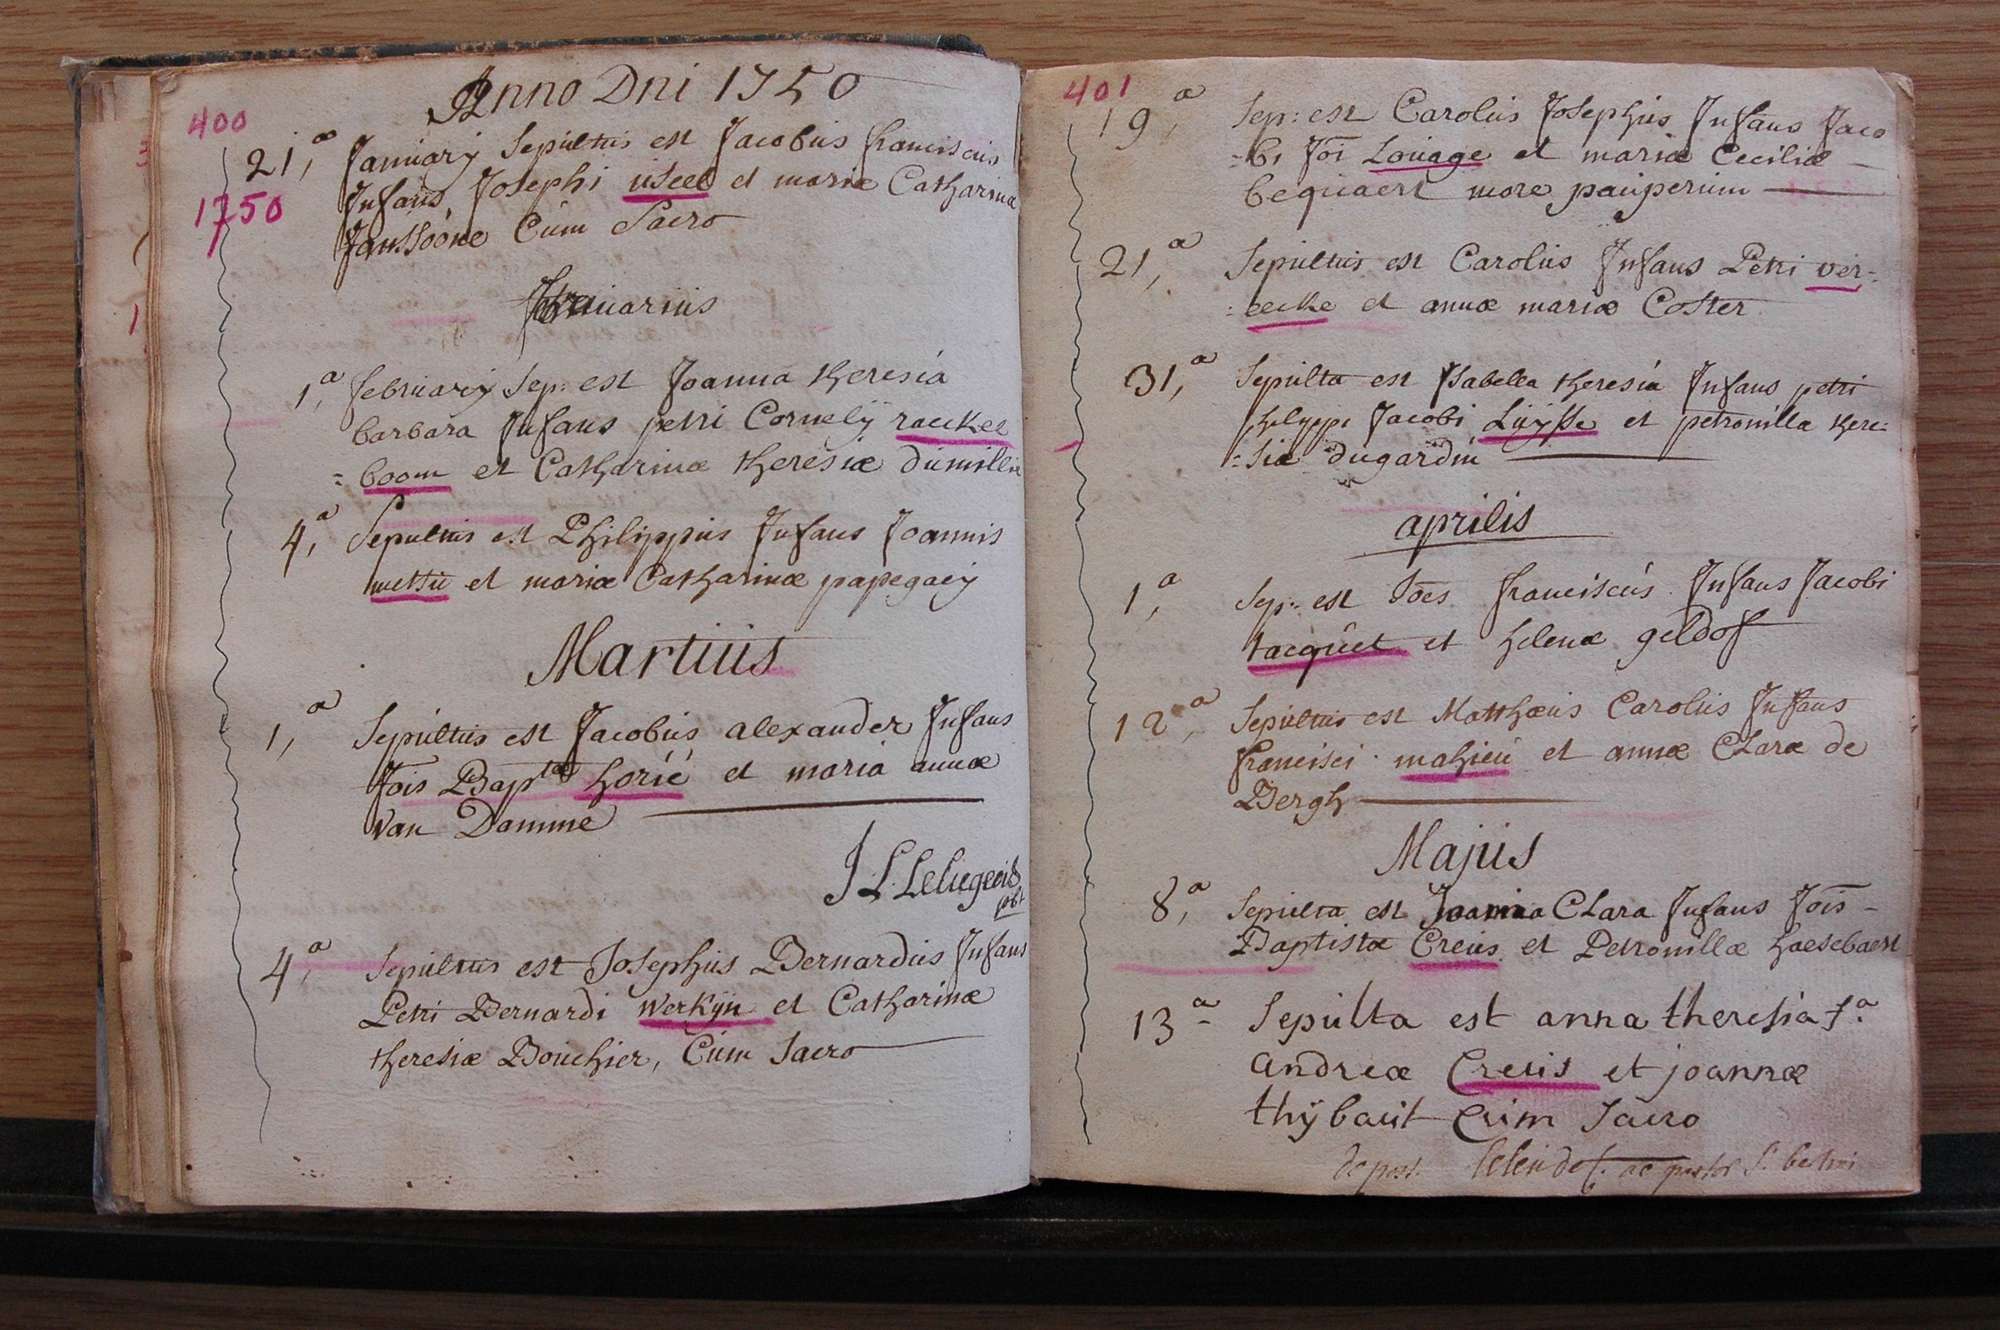 400
Anno Dni 1750
21,a Januarij Sepultus est Jacobus franciscus
1750
Infans Josephi useel et mariæ Catharinæ
Janssóone Cum Sacro
februarius
1,a februarij Sep: est Joanna theresia
barbara Infans petri Cornelij raeckel
=boom et Catharinæ theresiæ dumillie
4,a Sepultus est Philippus Infans Joannis
mettu et mariæ Catharinæ papegaeij
Martius
1,a Sepultus est Jacobus alexander Infans
Jois Baptæ horié et maria annæ
Van Damme
J L Leliegeois
pbr
4,a Sepultus est Josephus Bernardus Infans
Petri Bernardi Werkijn et Catharinæ
theresiæ Bouchier, Cum Sacro
401
19,a Sep: est Carolus Josephus Infans Jaco
=bi Joi Louage et mariæ Ceciliæ
bequaert more pauperum
21,a Sepultus est Carolus Infans Petri ver=
=eecke et annæ mariæ Coster
31,a Sepulta est Isabella theresia Infans petri
philippi Jacobi Luysse et petronilla there=
=siæ dugardin
aprilis
1,a Sep: est Joes franciscus Infans Jacobi
tacquet et helenæ geldof
12,a Sepultus est Matthæus Carolus Infans
francisci mahieu et annæ Claræ de
Bergh
Majus
8,a Sepulta est Joanna Clara Infans Jois
Baptistæ Creus et Petronillæ haesebaert
13a Sepulta est anna theresia f.a
andreæ Creus et joannæ
thÿbaut Cum Sacro